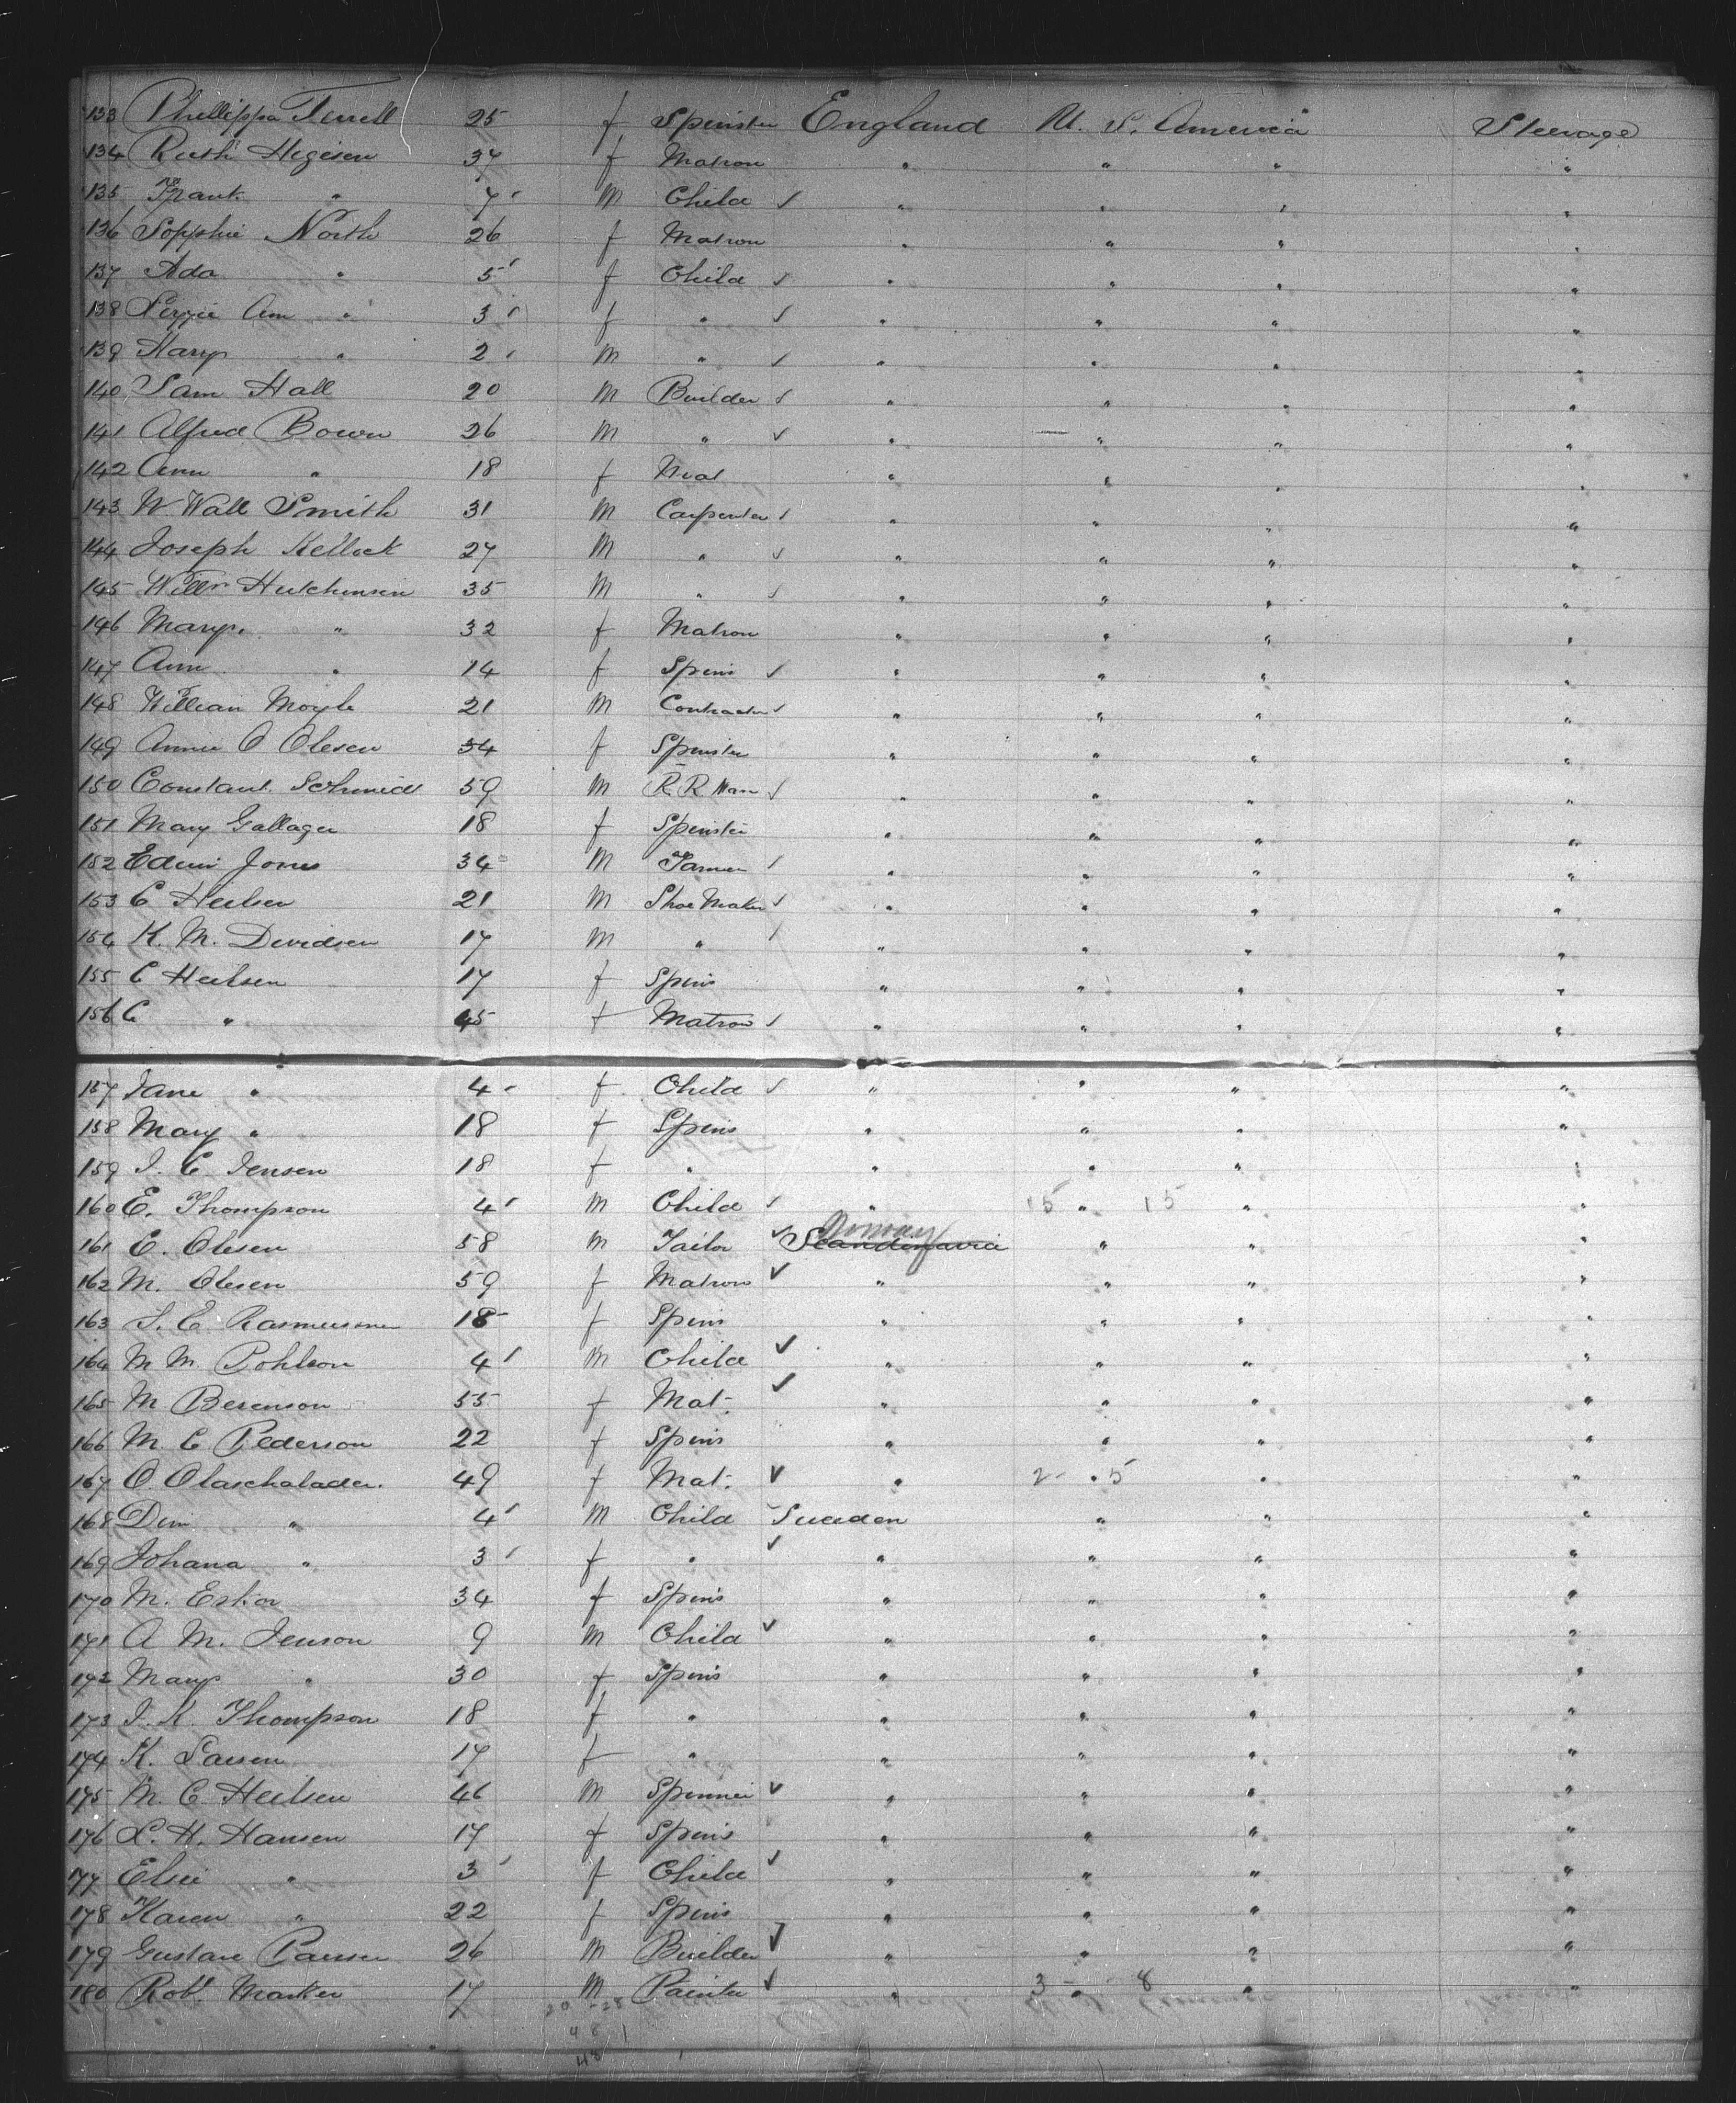 133 Phellippa Terrell 25 f Spinster England U. S. America Steerage
134 Ruth Hegisen 37 f Matron " " " "
135 Frank " 7 M Child " " " "
136 Sopphie North 26 f Matron " " " "
137 Ada " 5 f Child " " " "
138 Lizzie Ann " 3 f " " " " "
139 Harry " 2 M " " " " "
140 Sam Hall 20 M Builder " " " "
141 Alfred Bown 26 M " " " " "
142 Ann " 18 f Mat " " " "
143 W Wall Smith 31 M Carpenter " " " "
144 Joseph Kellick 27 M " " " " "
145 Willm Hutchinson 35 M " " " " "
146 Mary " 32 f Matron " " " "
147 Ann " 14 f Spins " " " "
148 William Moyle 21 M Contractor " " " "
149 Annie O Olesen 34 f Spinster " " " "
150 Constant Schmidt 59 M R R Man " " " "
151 Mary Gallager 18 f Spinster " " " "
152 Edwin Jones 34 M Farmer " " " "
153 C Heilsen 21 M Shoe Maker " " " "
154 K. M. Davidsen 17 M " " " " "
155 C Heilsen 17 f Spins " " " "
156 C " 45 f Matron " " " "
157 Jane " 4 f Child " " " "
158 Mary " 18 f Spins " " " "
159 J. C. Jensen 18 f " " " " "
160 E. Thompson 4 M Child " 15 " 15 " "
Norway
161 E. Olesen 58 M Tailor Scandinavia " " "
162 M. Olesen 59 f Matron " " " "
163 S. C. Rasmussen 18 f Spins " " " "
164 M M. Pohlson 4 M Child " " " "
165 M Berenson 55 f Mat. " " " "
166 M. C Pederson 22 f Spins " " " "
167 O Olaschalader. 49 f Mat. " 2 " 5 " "
168 " 4 M Child Sweden " " "
169 Johana " 3 f " " " " "
170 M. 34 f Spins " " " "
171 A M. Jenson 9 M Child " " " "
172 Mary " 30 f Spins " " " "
173 J. K. Thompson 18 f " " " " "
174 K. Larsen 17 f " " " " "
175 M. C Heilsen 46 M Spinner " " " "
176 L. H. Hansen 17 f Spins " " " "
77 Elsie " 3 f Child " " " "
178 Karen " 22 f Spins " " " "
179 Gustave 26 M Builder " " " "
180 Robt. Marker 17 M Painter " 3 " 8 " "
20 28
48 1
48